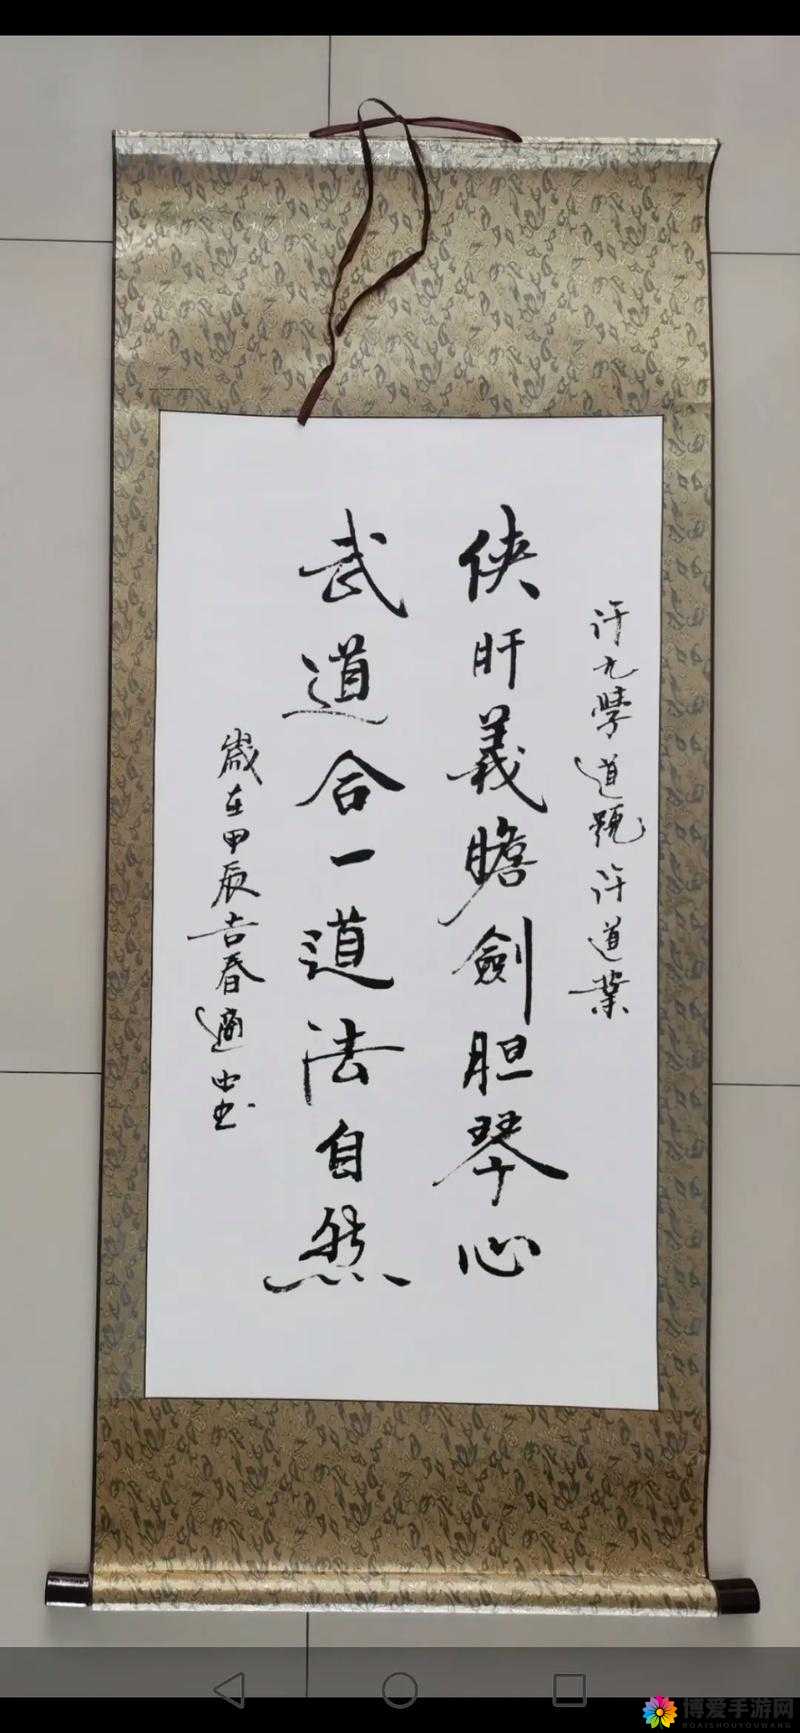 许九學道號许道業
侠肝義膽劍胆琴心
武道合一道法自然
歲在甲辰吉春適
博爱手游网
BOAISHOUYOUWANG